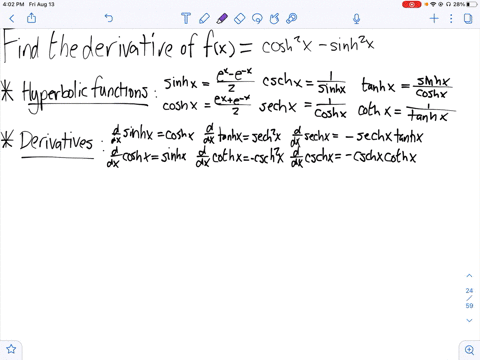 4:02 PM Fri Aug 13 28%
Find the derivative of f(x) = cosh²x - sinh²x
* Hyperbolic functions: sinhx = (eˣ-e⁻ˣ)/2 cschx = 1/sinhx tanhx = sinhx/coshx
coshx = (eˣ+e⁻ˣ)/2 sechx = 1/coshx cothx = 1/tanhx
* Derivatives: d/dx sinhx = coshx d/dx tanhx = sech²x d/dx sechx = -sechx tanhx
d/dx coshx = sinhx d/dx cothx = -csch²x d/dx cschx = -cschx cothx
24
/
59